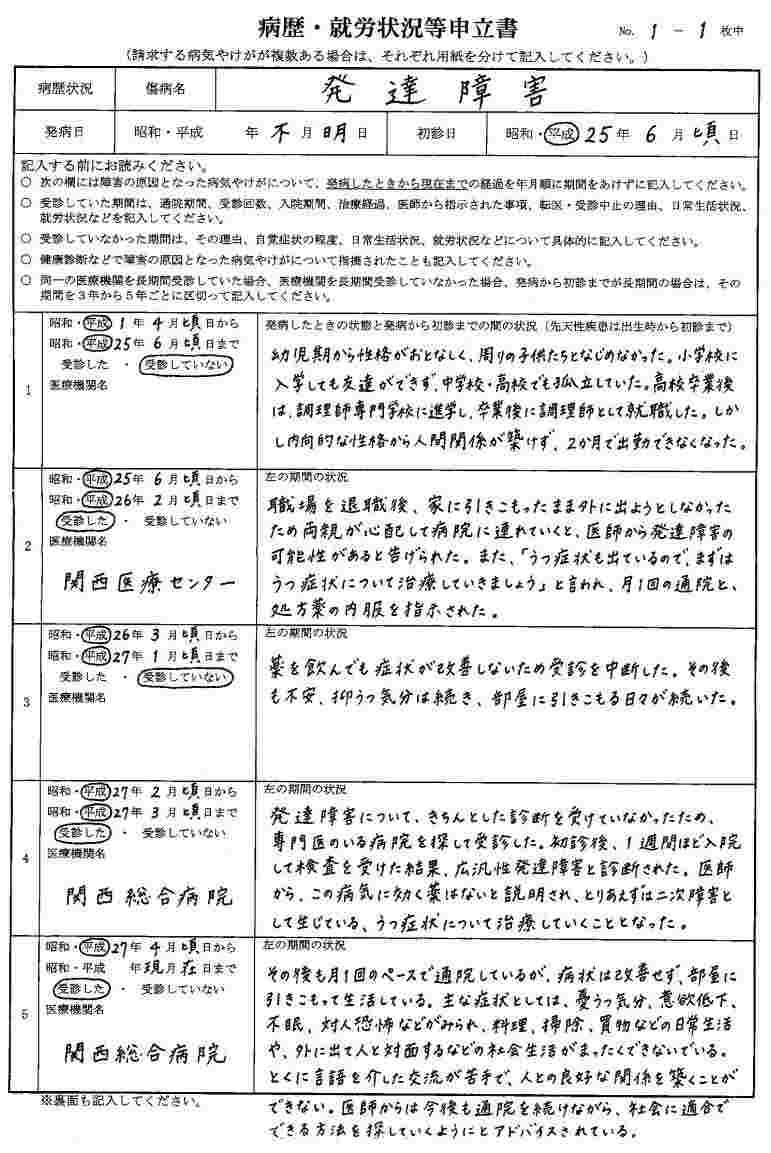 病歴・就労状況等申立書
No. 1 － 1 枚中
（請求する病気やけがが複数ある場合は、それぞれ用紙を分けて記入してください。）
病歴状況 傷病名 発達障害
発病日 昭和・平成 年 不 月 明 日 初診日 昭和・平成 25 年 6 月 頃 日
記入する前にお読みください。
○ 次の欄には障害の原因となった病気やけがについて、発病したときから現在までの経過を年月順に期間をあけずに記入してください。
○ 受診していた期間は、通院期間、受診回数、入院期間、治療経過、医師から指示された事項、転医・受診中止の理由、日常生活状況、
就労状況などを記入してください。
○ 受診していなかった期間は、その理由、自覚症状の程度、日常生活状況、就労状況などについて具体的に記入してください。
○ 健康診断などで障害の原因となった病気やけがについて指摘されたことも記入してください。
○ 同一の医療機関を長期間受診していた場合、医療機関を長期間受診していなかった場合、発病から初診までが長期間の場合は、その
期間を３年から５年ごとに区切って記入してください。
1
昭和・平成 1 年 4 月 頃 日から
昭和・平成 25 年 6 月 頃 日まで
受診した ・ 受診していない
医療機関名
発病したときの状態と発病から初診までの間の状況（先天性疾患は出生時から初診まで）
幼児期から性格がおとなしく、周りの子供たちとなじめなかった。小学校に
入学しても友達ができず、中学校・高校でも孤立していた。高校卒業後
は、調理師専門学校に進学し、卒業後に調理師として就職した。しか
し内向的な性格から人間関係が築けず、2か月で出勤できなくなった。
2
昭和・平成 25 年 6 月 頃 日から
昭和・平成 26 年 2 月 頃 日まで
受診した ・ 受診していない
医療機関名
関西医療センター
左の期間の状況
職場を退職後、家に引きこもったまま外に出ようとしなかった
ため両親が心配して病院に連れていくと、医師から発達障害の
可能性があると告げられた。また、「うつ症状も出ているので、まずは
うつ症状について治療していきましょう」と言われ、月1回の通院と、
処方薬の内服を指示された。
3
昭和・平成 26 年 3 月 頃 日から
昭和・平成 27 年 1 月 頃 日まで
受診した ・ 受診していない
医療機関名
左の期間の状況
薬を飲んでも症状が改善しないため受診を中断した。その後
も不安、抑うつ気分は続き、部屋に引きこもる日々が続いた。
4
昭和・平成 27 年 2 月 頃 日から
昭和・平成 27 年 3 月 頃 日まで
受診した ・ 受診していない
医療機関名
関西総合病院
左の期間の状況
発達障害について、きちんとした診断を受けていなかったため、
専門医のいる病院を探して受診した。初診後、1週間ほど入院
して検査を受けた結果、広汎性発達障害と診断された。医師
から、この病気に効く薬はないと説明され、とりあえずは二次障害と
して生じている、うつ症状について治療していくこととなった。
5
昭和・平成 27 年 4 月 頃 日から
昭和・平成 年 現 月 在 日まで
受診した ・ 受診していない
医療機関名
関西総合病院
左の期間の状況
その後も月1回のペースで通院しているが、病状は改善せず、部屋に
引きこもって生活している。主な症状としては、憂うつ気分、意欲低下、
不眠、対人恐怖などがみられ、料理、掃除、買物などの日常生活
や、外に出て人と対面するなどの社会生活がまったくできないでいる。
とくに言語を介した交流が苦手で、人との良好な関係を築くことが
できない。医師からは今後も通院を続けながら、社会に適合で
できる方法を探していくようにとアドバイスされている。
※裏面も記入してください。